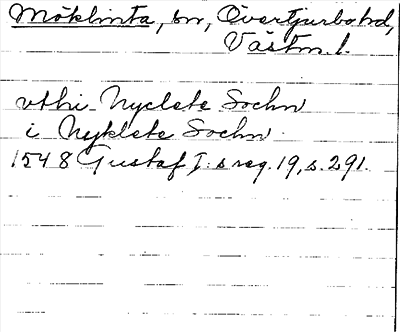 Möklinta, sn, Övertjurbo hd,
Västm. l.
vthi Nyclete Sochn
i Nyklete Sochn.
1548 Gustaf I:s reg. 19, s. 291.